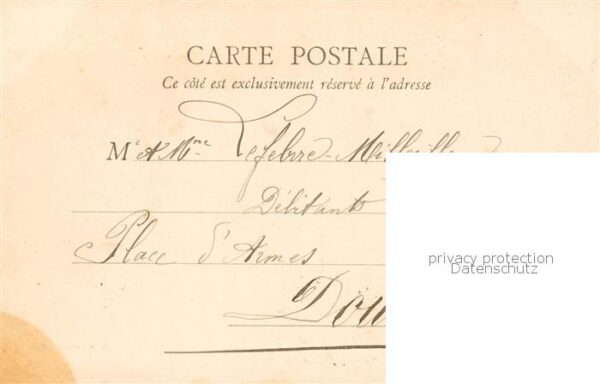 CARTE POSTALE
Ce côté est exclusivement réservé à l'adresse
Mr & Mme Lefebvre-
Débitants
Place d'Armes
Dou
privacy protection
Datenschutz